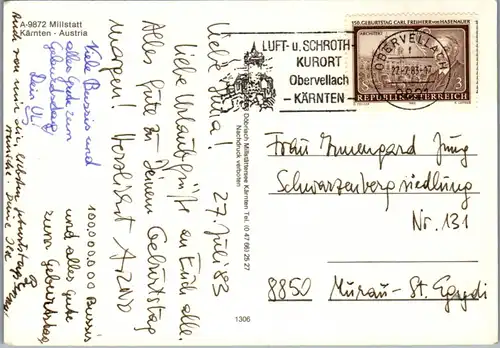 A-9872 Millstatt
Kärnten - Austria
Viele Bussis und
alles Gute zum
Geburtstag
Dein Uli
Auch von mir die liebsten Geburtstags-
wünsche! Deine Ilse
100.000.000 Bussis
und alles Gute
zum Geburtstag
27. Juli 83
Liebe Julia!
liebe Urlaubsgrüße an Euch alle.
Alles Gute zu Deinem Geburtstag
morgen! Herzlichst ARND
Döbriach Millstättersee Kärnten Tel. (0 47 66) 25 27
Nachdruck verboten
1306
LUFT- u. SCHROTH-
KURORT
Obervellach
- KÄRNTEN -
OBERVELLACH
27.-7.83-17
150. GEBURTSTAG CARL FREIHERR VON HASENAUER
ARCHITEKT
S 3
REPUBLIK ÖSTERREICH
Frau Irmengard Jung
Schwarzenbergsiedlung
Nr. 131
8850 Murau - St. Egydi